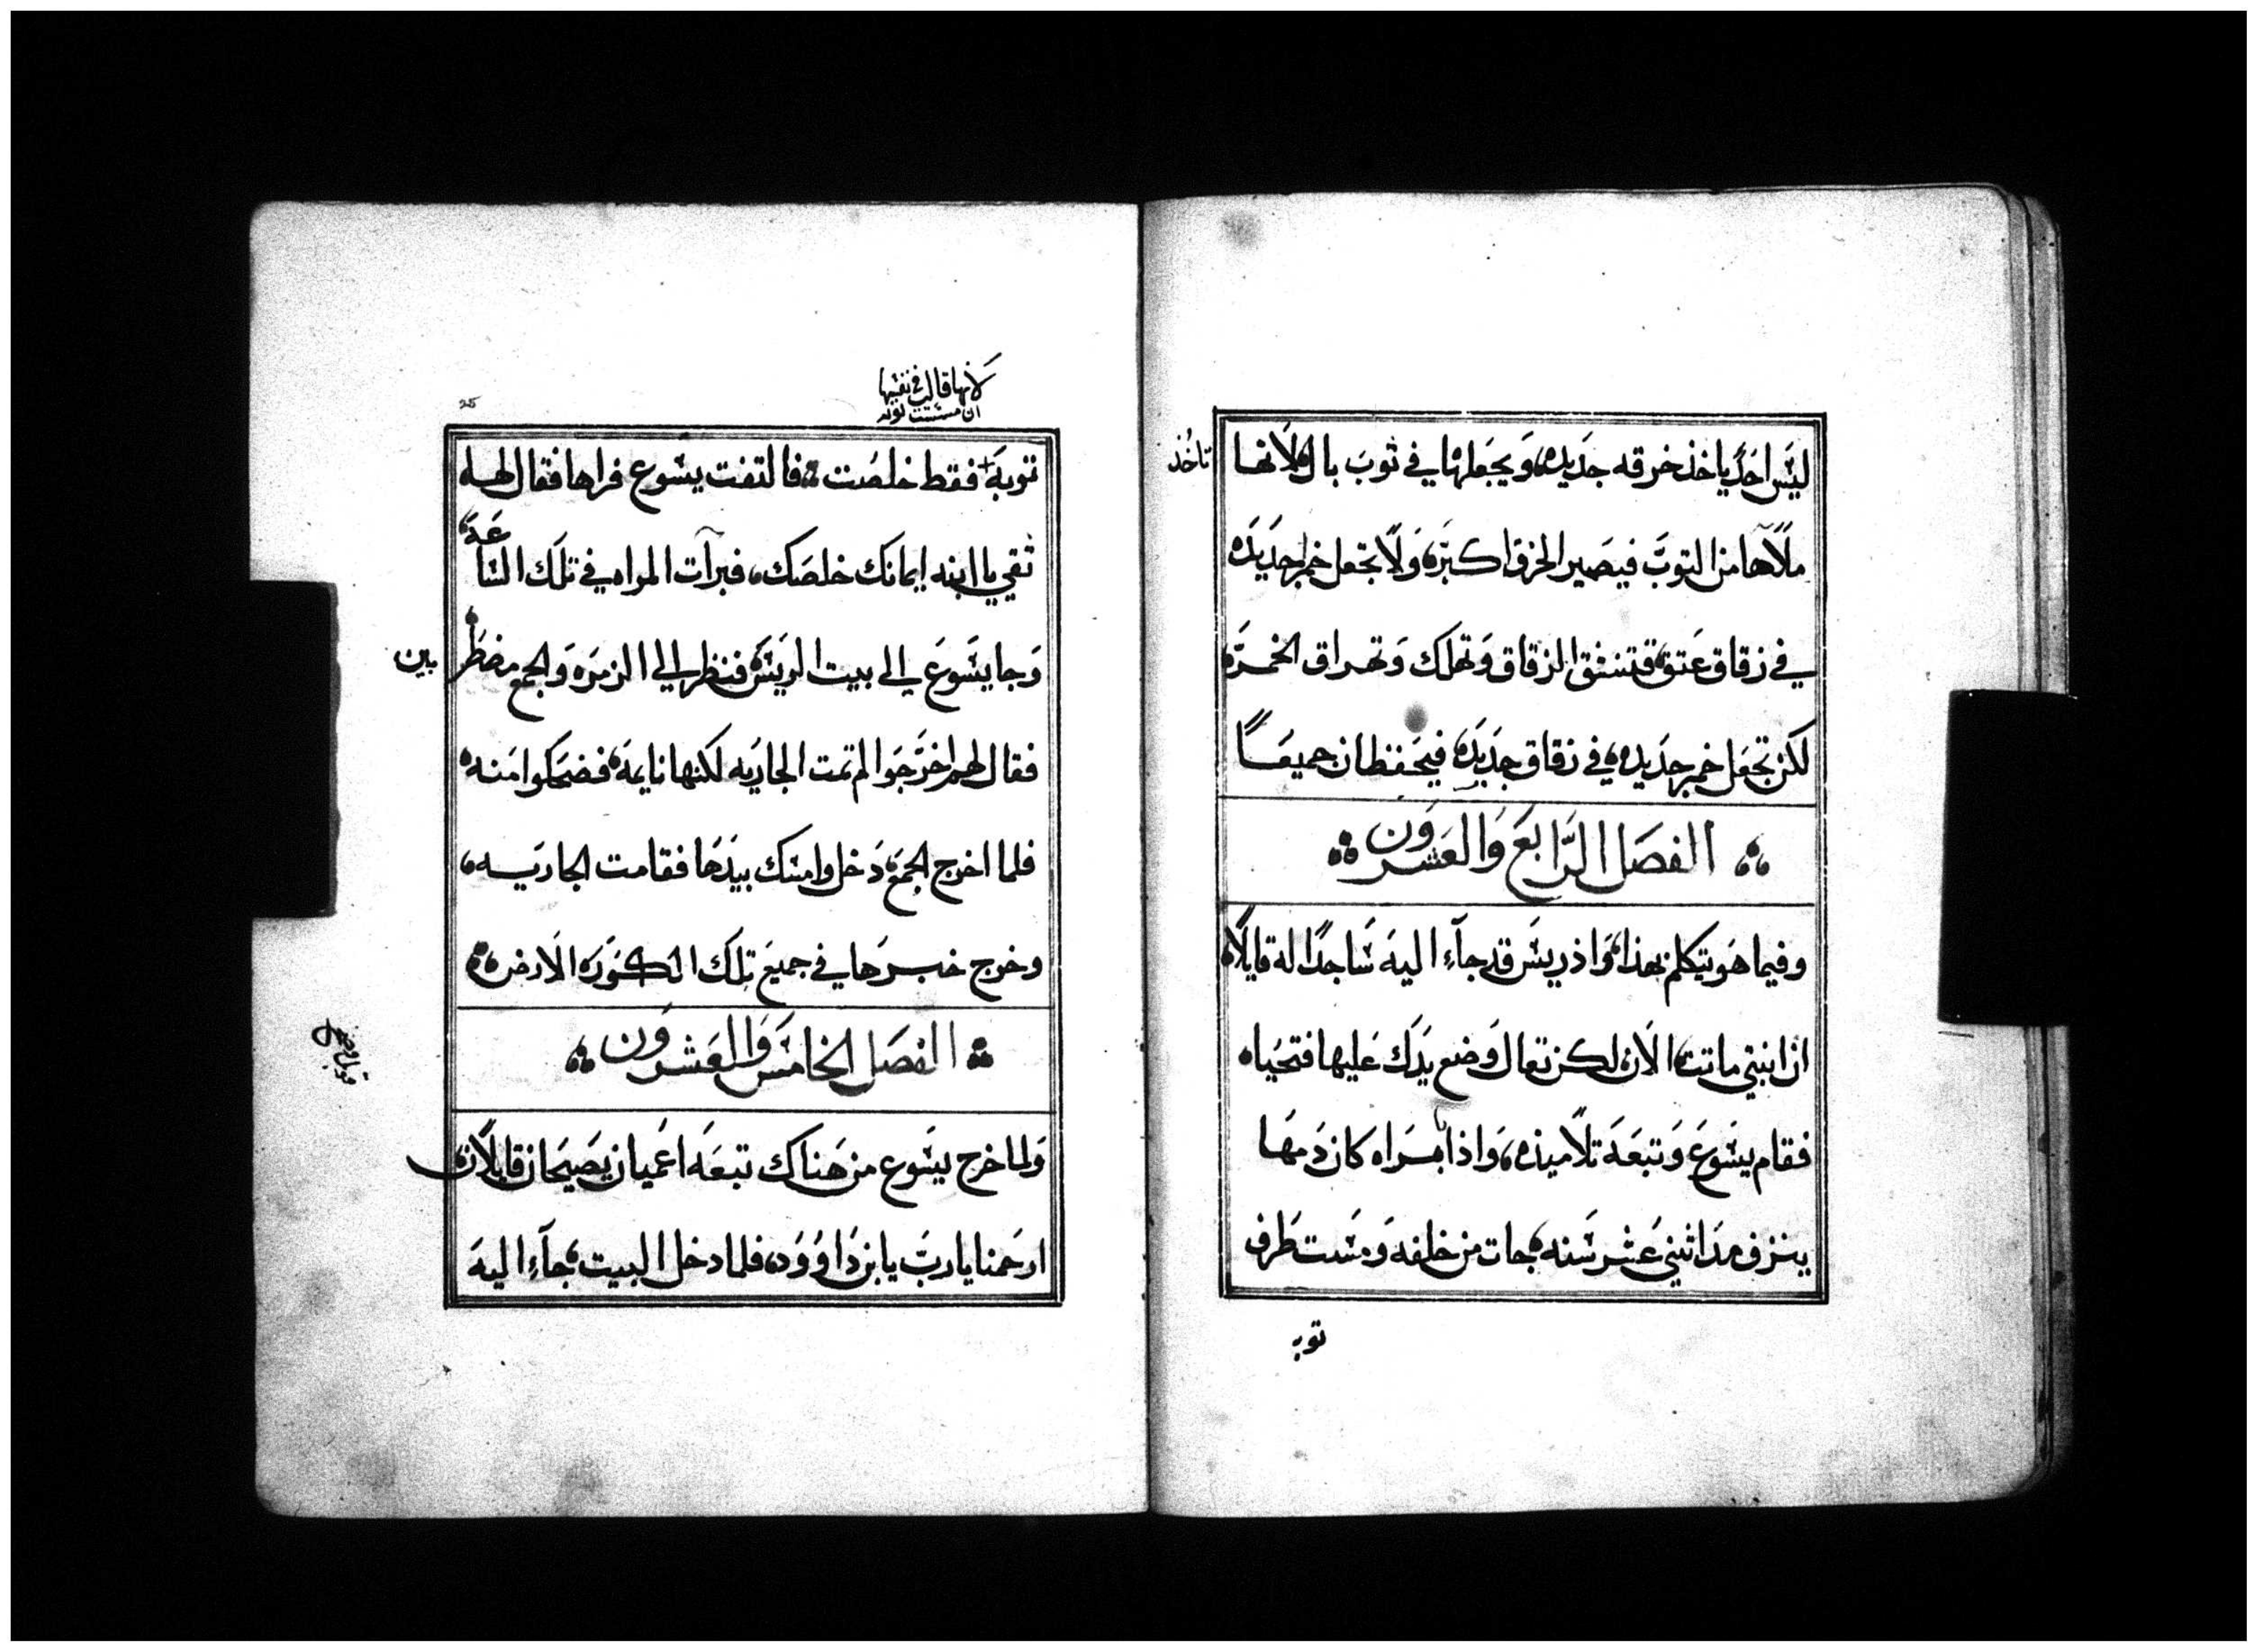 ليس احد ياخذ خرقه جديده، ويجعلها في ثوب بال، لانها
تاخد
ملآها من التوب فيصير الخرق اكبتره، ولا تجعل خمر جديده
في زقاق عتق، فتنشق الزقاق وتهلك وتهراق الخمره
لكن تجعل خمر جديده، في زقاق جديده، فيحفظان جميعًا
الفصل الرابع والعشرون
وفيما هو يتكلم بهذا، واذ ريس قد جآء اليه ساجدًا له قايلًا،
ان ابنتي ماتت، الان، لكن تعال وضع يدك عليها فتحيا،
فقام يسوع وتبعه تلاميذه، واذا امراه كان دمها
ينزف مدا اثني عشر سنه، جات من خلفه ومست طرف
توبه
لانها قالت في نفسها
ان مسست توبه
25
توبه فقط خلصت فالتفت يسوع فراها فقال لها
ثقي يا ابنه ايمانك خلصك، فبرآت المراه في تلك الساعه
وجا يسوع الى بيت الريس، فنظر الي الزمره والجمع مضطر
بين
فقال لهم اخرجوا لم تمت الجاريه لكنها نايمه، فضحكوا منه،
فلما اخرج الجمع، دخل وامسك بيدها فقامت الجاريه،
وخرج خبرها في جميع تلك الكوره الارض
الفصل الخامس والعشرون
ولما خرج يسوع من هناك تبعه اعميان يصيحان قايلان
ارحمنا يا رب يا بن داوود، فلما دخل البيت، جآء اليه